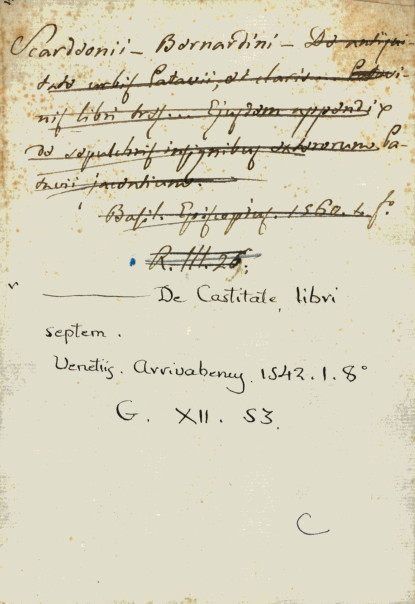 Scardeonii - Bernardini - De antiqui-
tate urbis Patavii, et claris... Patavi-
nis libri tres... Ejusdem appendix
de sepulchris insignibus exterorum Pa-
tavii jacentium.
Basil. Episcopius. 1560. 1. fo.
R. III. 26.
——— De Castitate, libri
septem.
Venetijs. Arrivabenus 1542. 1. 8°
G. XII. 53.
C